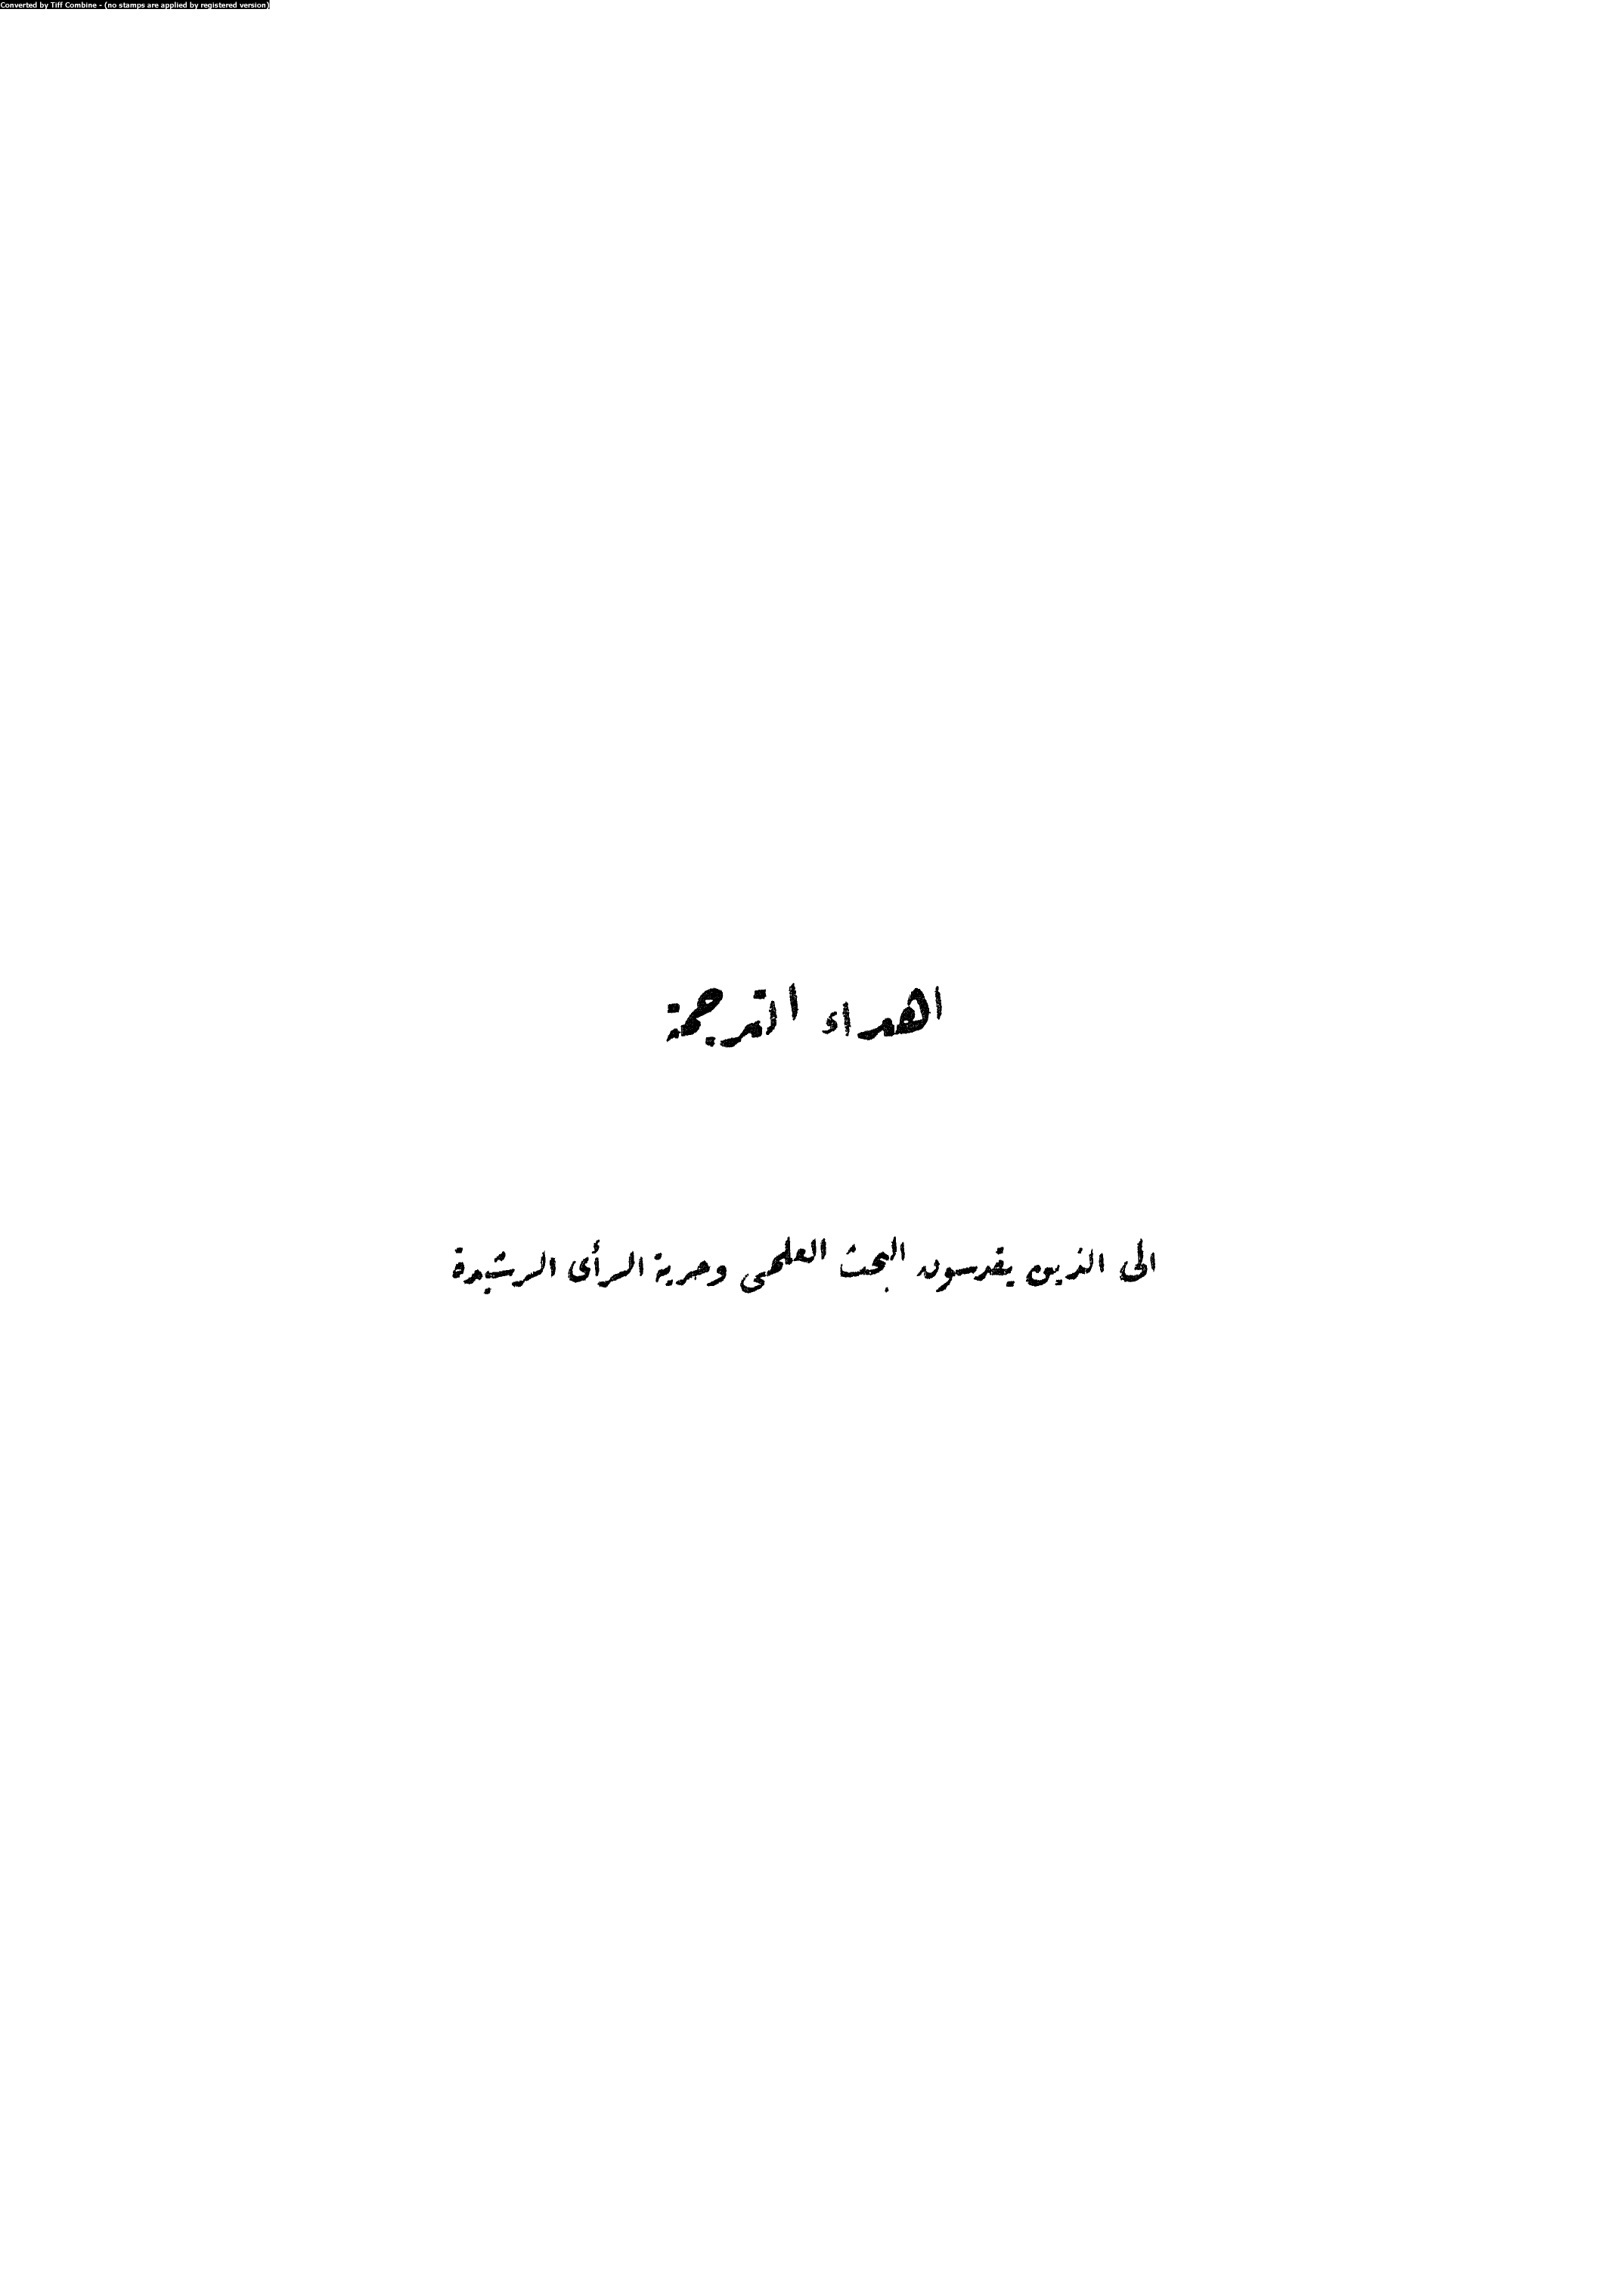 Converted by Tiff Combine - (no stamps are applied by registered version)
اهداء الترجمة
الى الذين يقدسون البحث العلمى وحرية الرأى الرشيدة